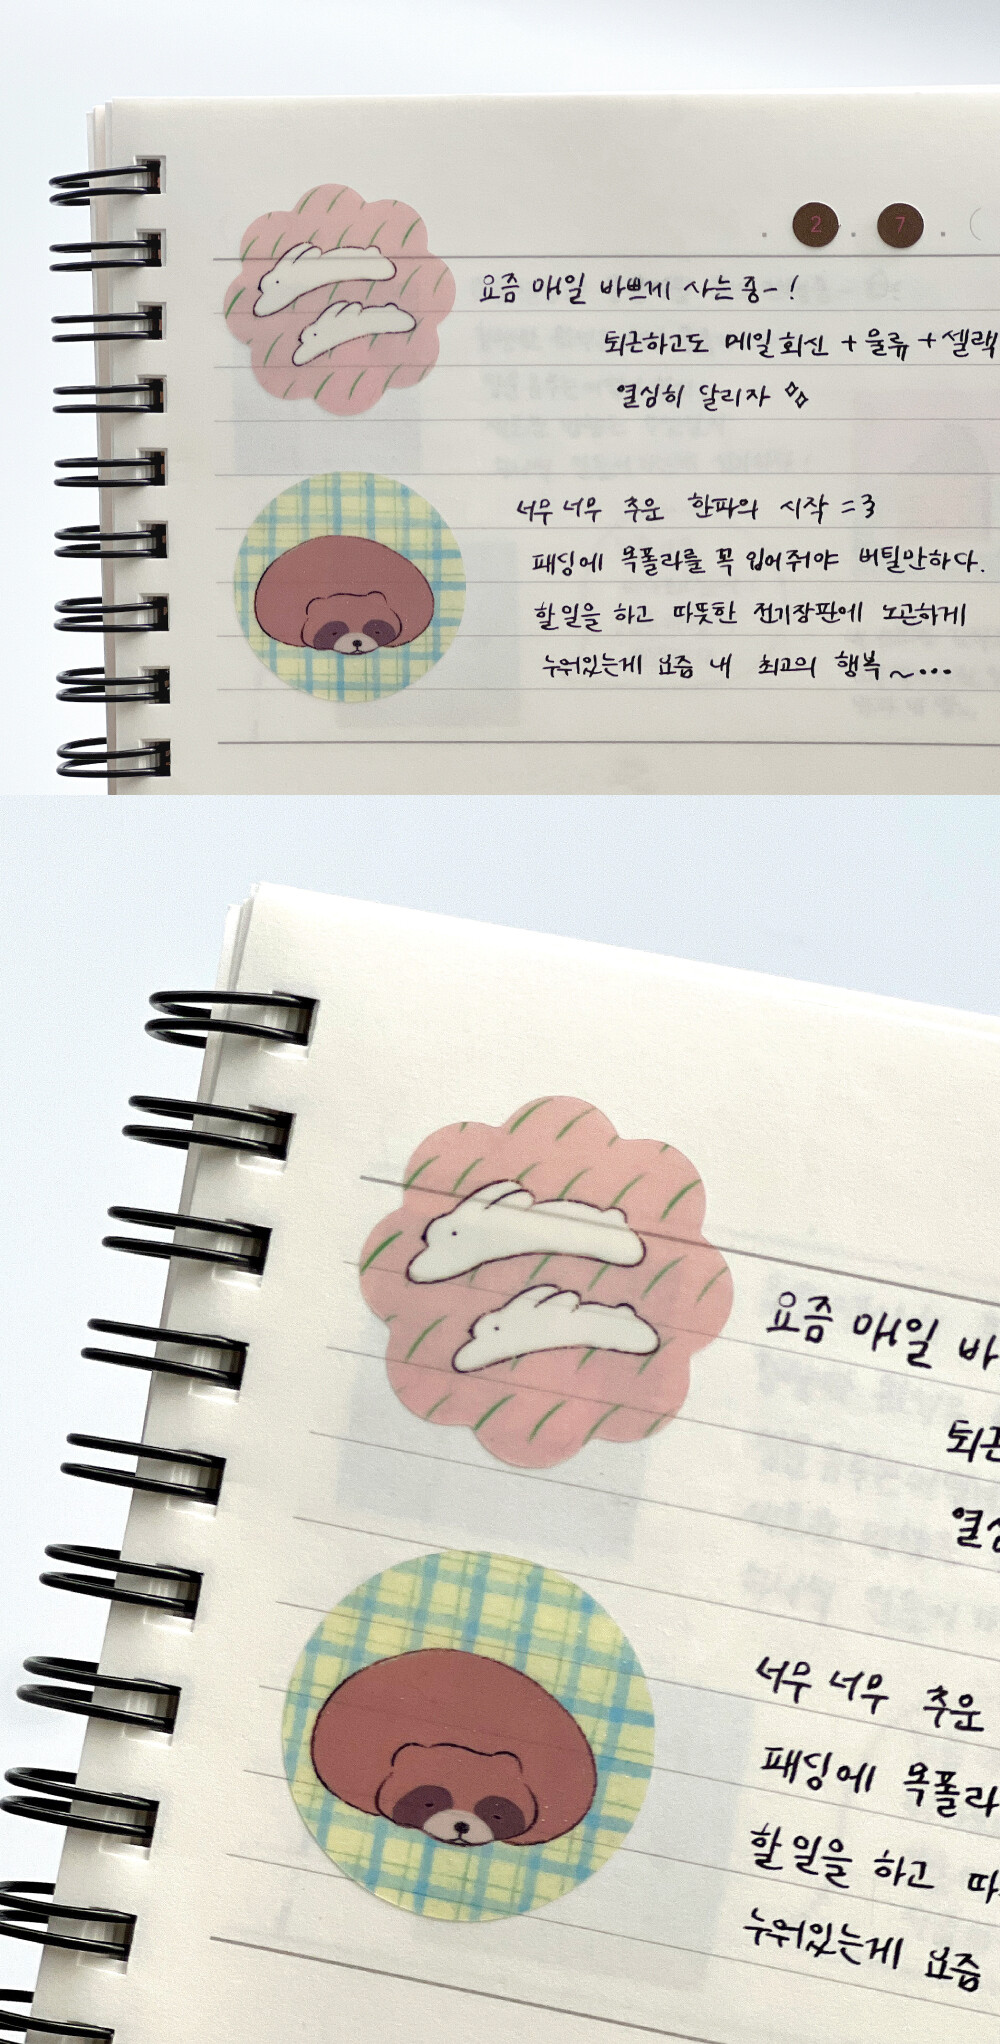 2 7
요즘 매일 바쁘게 사는 중~!
퇴근하고도 메일 회신 + 물류 + 셀렉
열심히 달리자
너무 너무 추운 한파의 시작 =3
패딩에 목폴라를 꼭 입어줘야 버틸만하다.
할 일을 하고 따뜻한 전기장판에 노곤하게
누워있는게 요즘 내 최고의 행복~...
요즘 매일 바
퇴근
열심
너무 너무 추운
패딩에 목폴라
할 일을 하고 따
누워있는게 요즘